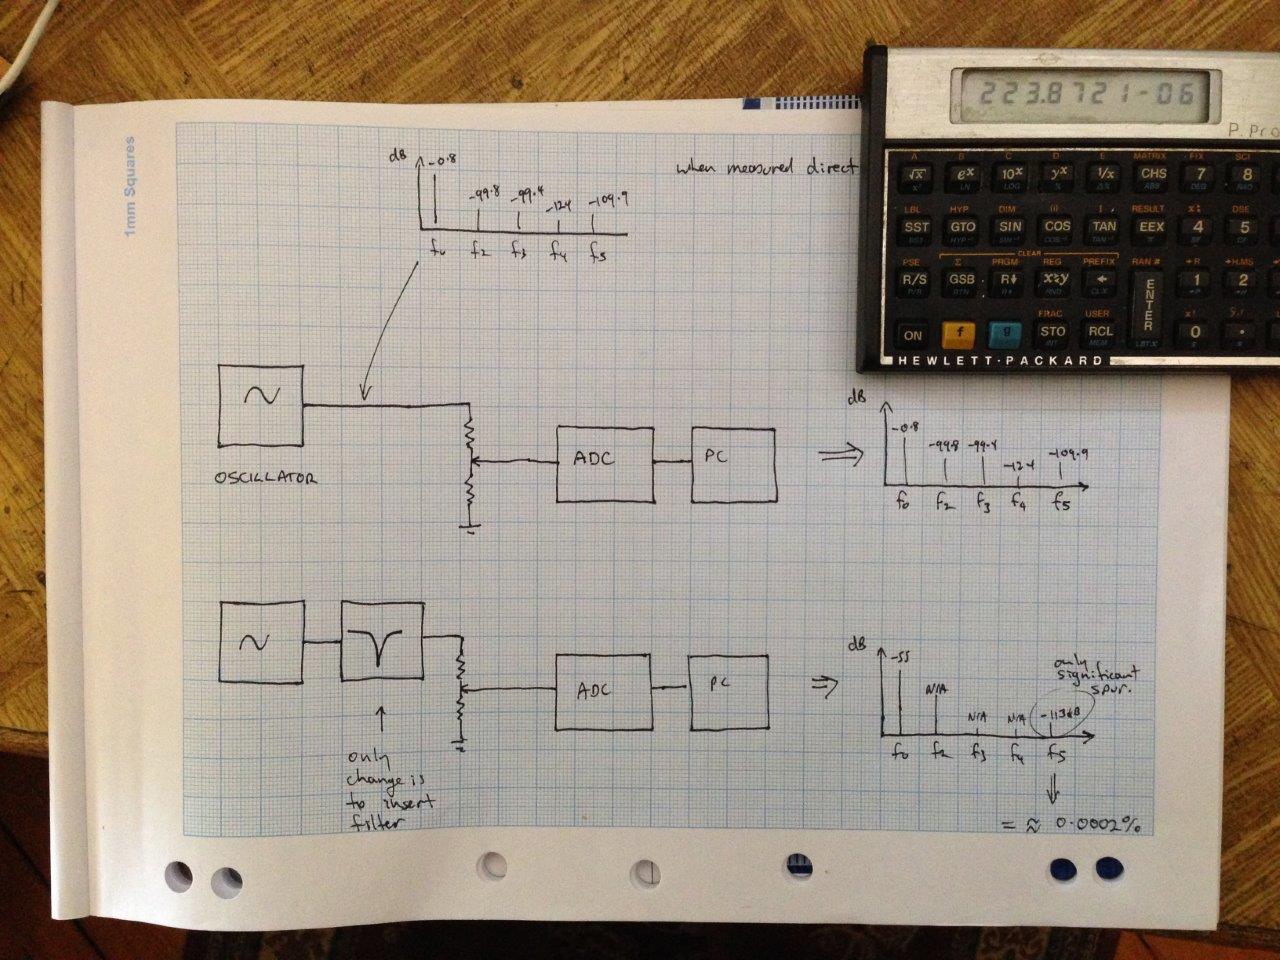 1mm Squares
dB
-0.8
-99.8
-99.4
-124
-109.9
f₀ f₂ f₃ f₄ f₅
when measured direct
223.8721-06
A B C D E MATRIX FIX SCI
√x eˣ 10ˣ yˣ 1/x CHS 7 8
x² LN LOG % Δ% ABS DEG RAD
LBL HYP DIM (i) I RESULT x⇄ DSE
SST GTO SIN COS TAN EEX 4 5
BST HYP⁻¹ SIN⁻¹ COS⁻¹ TAN⁻¹
CLEAR
PSE Σ PRGM REG PREFIX RAN # →R →H.MS
R/S GSB R↓ x⇄y ← ENTER 1 2
P/R RTN R↑ RND CLx
FRAC USER x!
ON f g STO RCL 0 .
INT MEM LST x
HEWLETT·PACKARD
OSCILLATOR
ADC
PC
dB
-0.8
-99.8
-99.4
-124
-109.9
f₀ f₂ f₃ f₄ f₅
only
change is
to insert
filter
ADC
PC
dB
-55
N/A
N/A
N/A
-113dB
only
significant
spur.
f₀ f₂ f₃ f₄ f₅
= ≈ 0.0002%